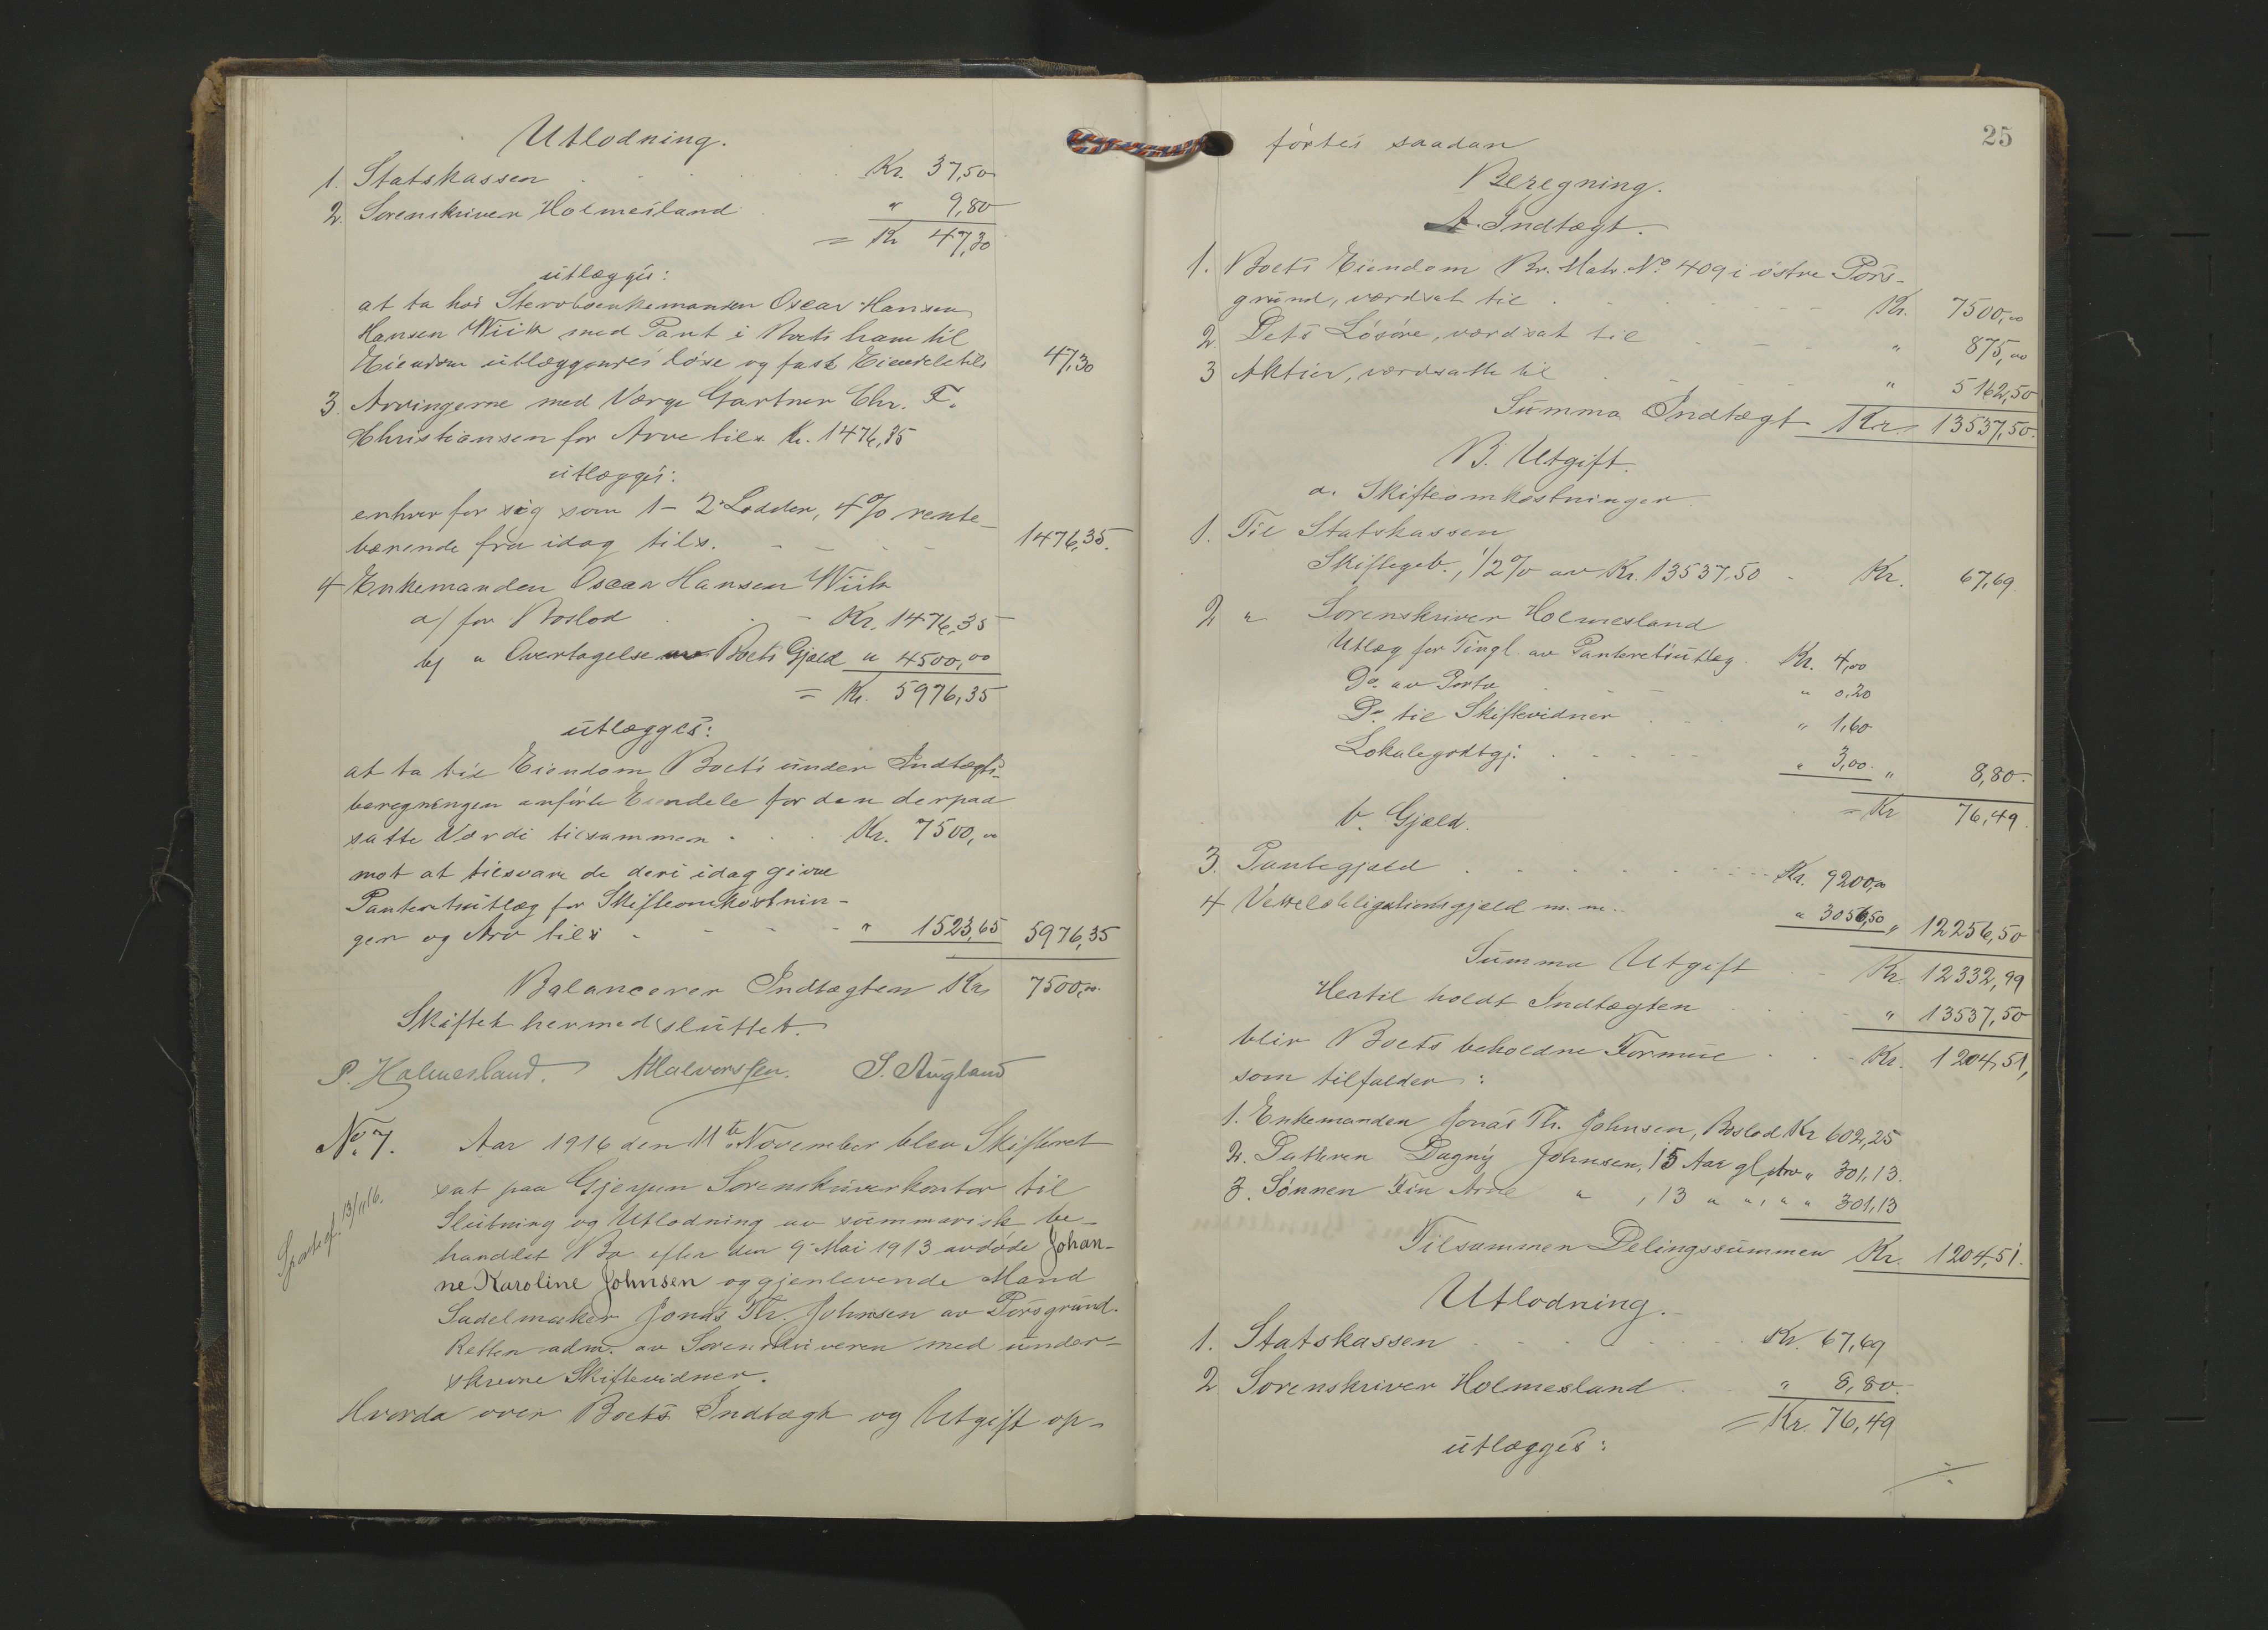 Utlodning.
1. Statskassen Kr. 37,50
2. Sorenskriver Holmesland " 9,80
= Kr 47,30
utlægges:
at ta hos Stervboenkemanden Oscar Hansen
Hansen Wiik med Pant i Boets ham til
Eiendom utlæggendes løse og fast Eiendele tils 47,30
3. Arvingerne med Værge Gartner Chr. F.
Christiansen for Arve tils. Kr. 1476,35
utlægges:
enhver for sig som 1-2 Lodder, 4% rente-
bærende fra idag tils. 1476,35.
4 Enkemanden Oscar Hansen Wiik
a/ for Boslod Kr. 1476,35
b/ " Overtagelse av Boets Gjæld " 4500,00
= Kr. 5976,35
utlægges:
at ta til Eiendom Boets under Indtægts-
beregningen anførte Eiendele for den derpaa
satte Værdi tilsammen Kr. 7500,00
mot at tilsvare de deri idag givne
Panteretsutlæg for Skifteomkostnin-
gen og Arv tils " 1523,65 5976,35
Balancerer Indtægten Kr. 7500,00.
Skiftet hermed sluttet.
P. Holmesland. AHalvorssen. S. Augland
No. 7. Aar 1916 den 11te November blev Skifteret
sat paa Gjerpen Sorenskriverkontor til
Slutning og Utlodning av summarisk be-
handlet Bo efter den 9. Mai 1913 avdøde Johan-
ne Karoline Johnsen og gjenlevende Mand
Sadelmaker Jonas Th. Johnsen av Porsgrund.
Retten adm. av Sorenskriveren med under-
skrevne Skiftevidner.
Hvorda over Boets Indtægt og Utgift op-
13/11 16.
25
førtes saadan
Beregning.
A. Indtægt.
1. Boets Eiendom Br. Matr. No 409 i østre Pors-
grund, værdsat til Kr. 7500,00
2 Dets Løsøre, værdsat til " 875,00
3 Aktier, værdsatte til " 5162,50
Summa Indtægt Kr. 13537,50.
B. Utgift.
a. Skifteomkostninger
1. Til Statskassen
Skiftegeb., 1/2% av Kr. 13537.50 - Kr. 67,69
2, " Sorenskriver Holmesland
Utlæg for Tingl. av Panteretsutlæg. Kr. 4,00
Do. av Porto " 0,20
Do. til Skiftevidner " 1,60
Lokalegodtgj. " 3,00. " 8,80.
= Kr 76,49
b. Gjæld.
3. Pantegjæld Kr. 9200,00
4 Vexelobligationsgjæld m. m. " 3056,50 " 12256,50
Summa Utgift Kr. 12332,99
Hertil holdt Indtægten " 13537,50
blir Boets beholdne Formue Kr. 1204,51,
som tilfalder:
1. Enkemanden Jonas Th. Johnsen, Boslod Kr 602,25
2. Datteren Dagny Johnsen, 15 Aar gl, Arv " 301,13.
3. Sønnen Fin Arne " , 13 " ", " " 301,13
Tilsammen Delingssummen Kr. 1204,51.
Utlodning.
1. Statskassen Kr. 67,69
2 Sorenskriver Holmesland " 8,80.
= Kr. 76,49
utlægges: